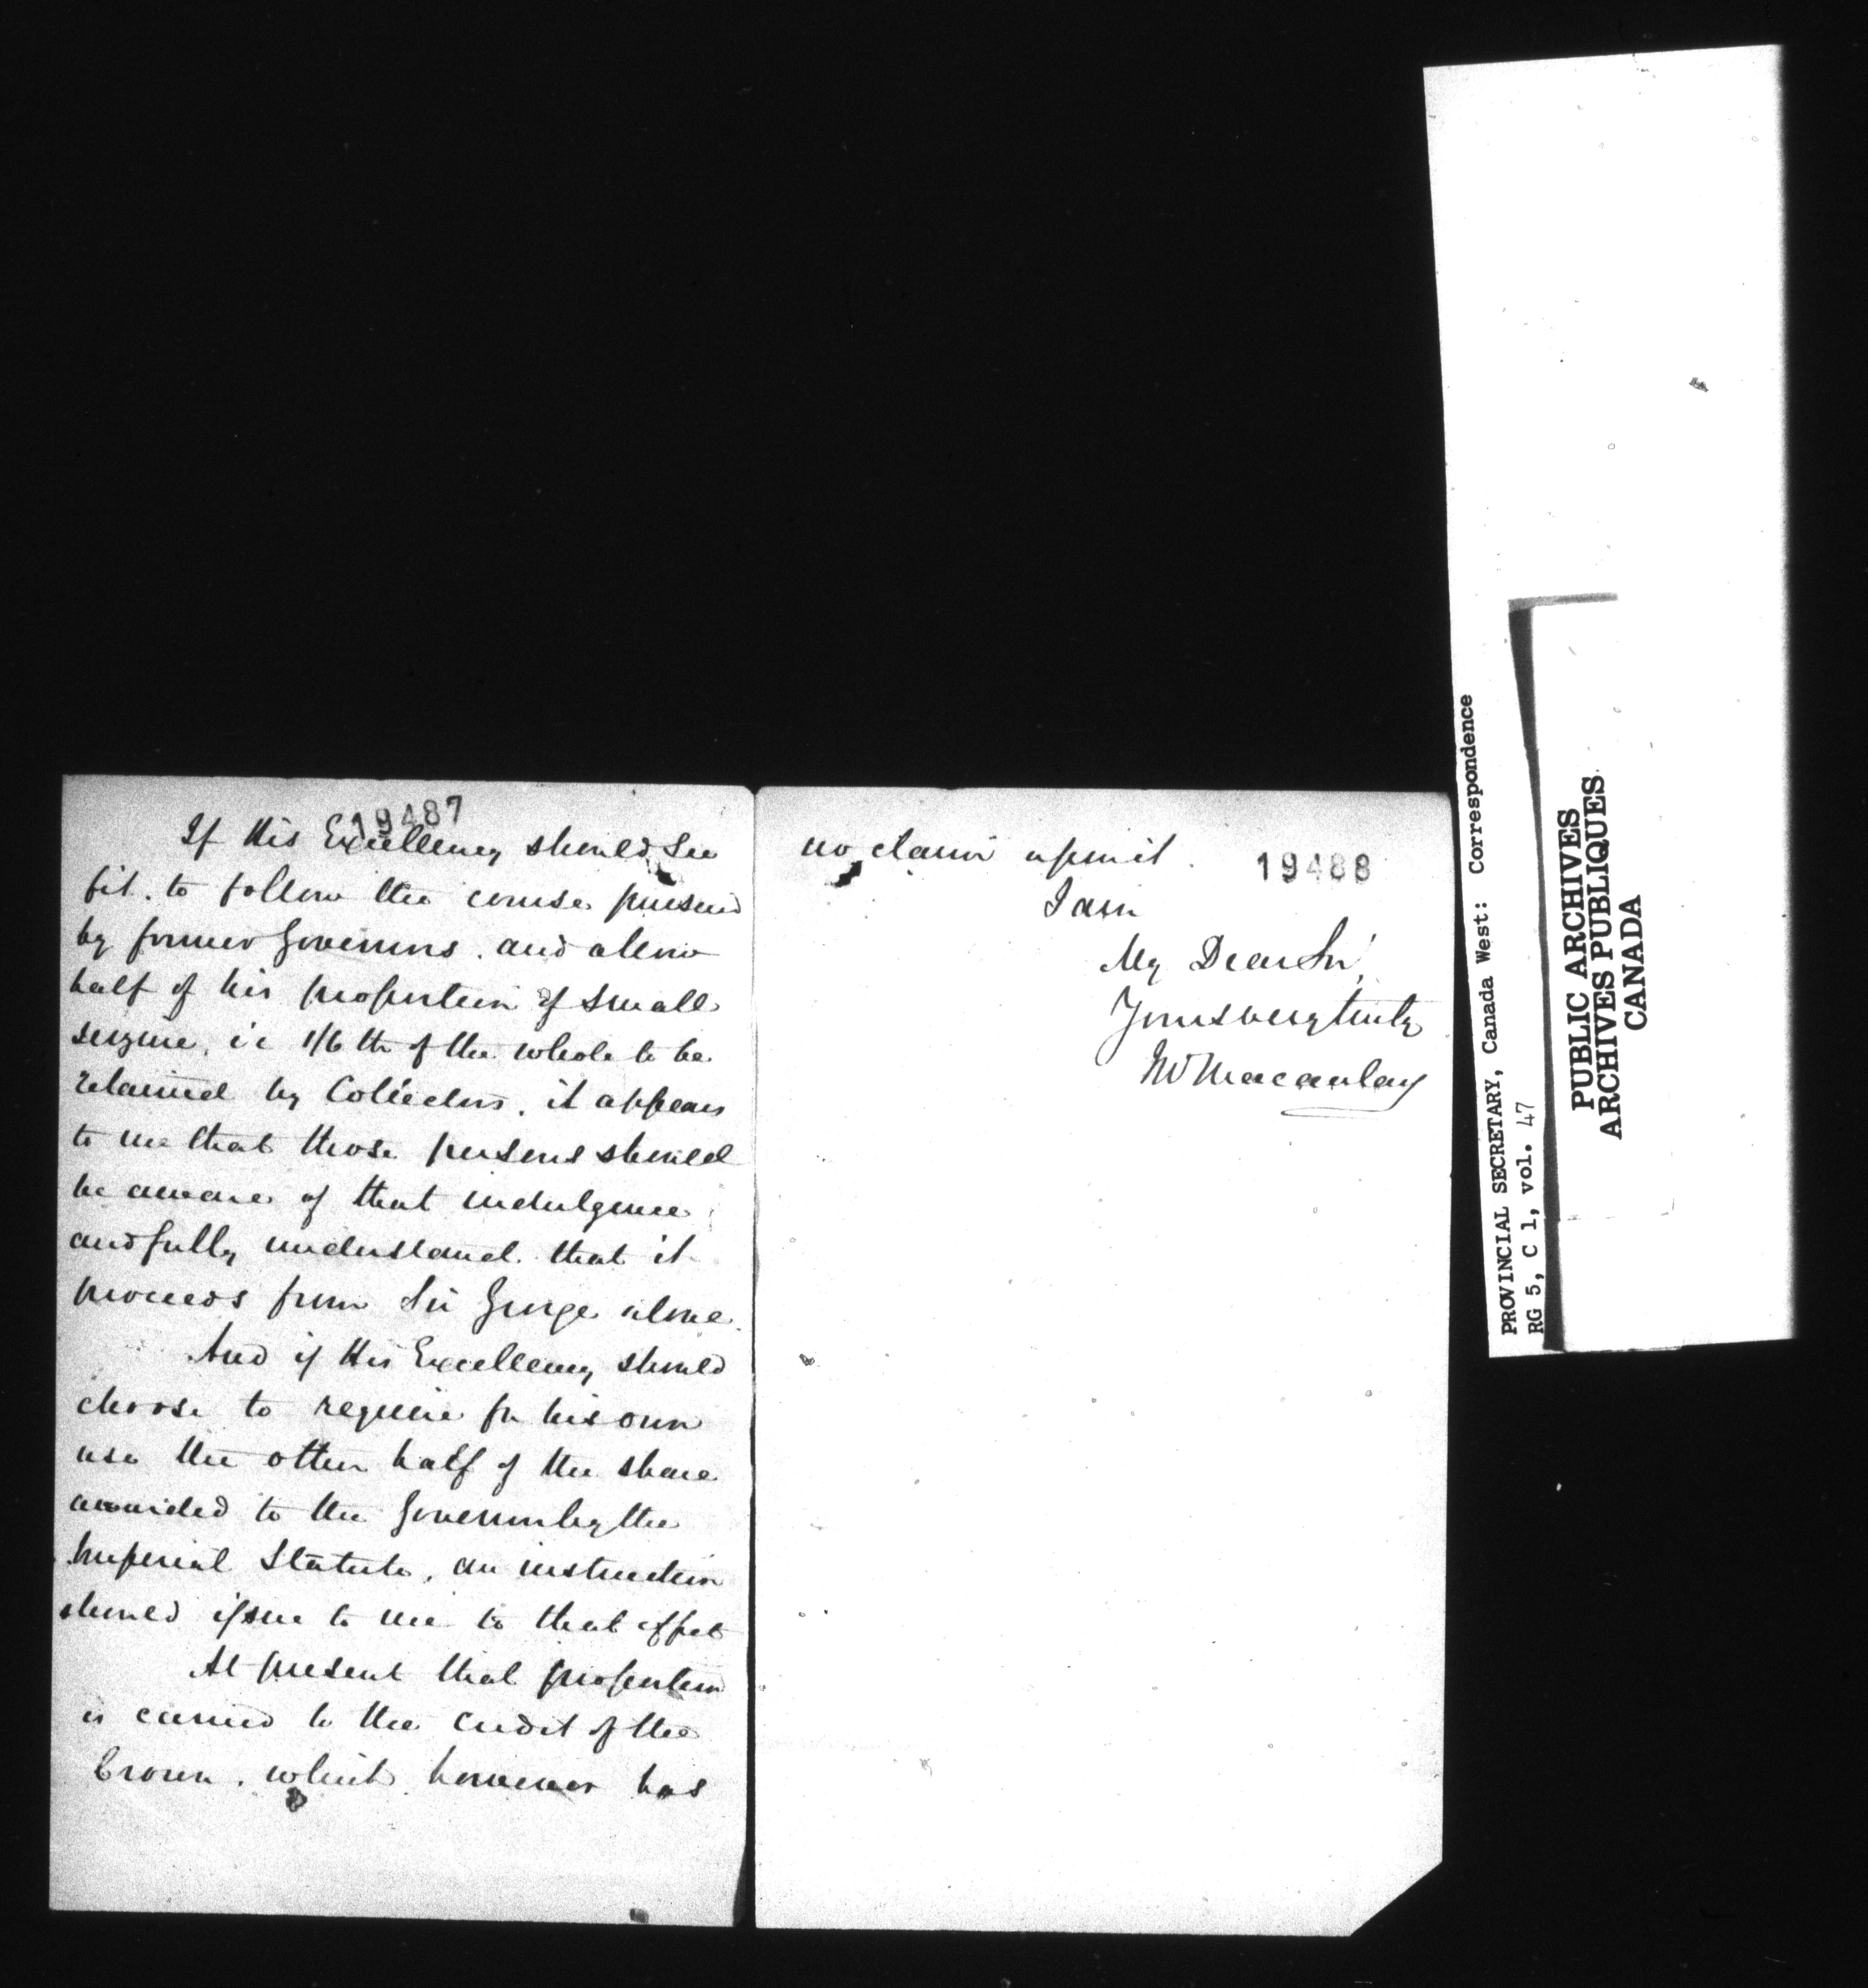 19487
If His Excellency should see
fit. to follow the course pursued
by former Governors. and allow
half of his proportion of small
seizure, ie 1/6th of the whole to be
retained by Collectors, it appears
to me that those persons should
be aware of that indulgence
and fully understand that it
proceeds from Sir George alone.
And if His Excellency should
choose to require for his own
use the other half of the share
awarded to the Governor by the
Imperial Statute, an instruction
should issue to me to that effect
At present that proportion
is carried to the credit of the
Crown. which however has
no claim upon it.
19488
I am
My Dear Sir,
Yours very truly
Macaulay
PROVINCIAL SECRETARY, Canada West: Correspondence
RG 5, C 1, vol. 47
PUBLIC ARCHIVES
ARCHIVES PUBLIQUES
CANADA